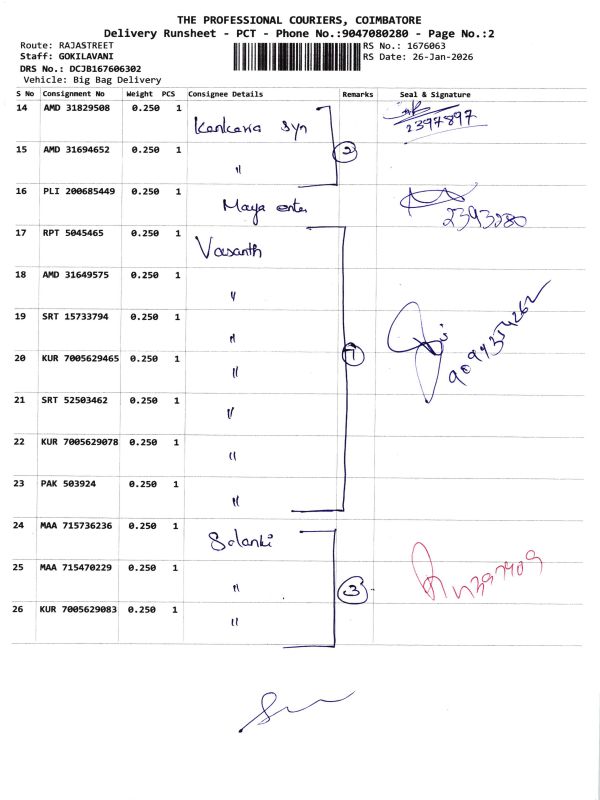 THE PROFESSIONAL COURIERS, COIMBATORE
Delivery Runsheet - PCT - Phone No.:9047080280 - Page No.:2
Route: RAJASTREET
RS No.: 1676063
Staff: GOKILAVANI
RS Date: 26-Jan-2026
DRS No.: DCJB167606302
Vehicle: Big Bag Delivery
S No Consignment No Weight PCS Consignee Details Remarks Seal & Signature
14 AMD 31829508 0.250 1 Kankaria Syn 2397897
15 AMD 31694652 0.250 1 " 2
16 PLI 200685449 0.250 1 Maya ente 2393280
17 RPT 5045465 0.250 1 Vasanth
18 AMD 31649575 0.250 1 "
19 SRT 15733794 0.250 1 "
20 KUR 7005629465 0.250 1 " 7
21 SRT 52503462 0.250 1 "
22 KUR 7005629078 0.250 1 "
23 PAK 503924 0.250 1 "
24 MAA 715736236 0.250 1 Solanki
25 MAA 715470229 0.250 1 " 3
26 KUR 7005629083 0.250 1 "